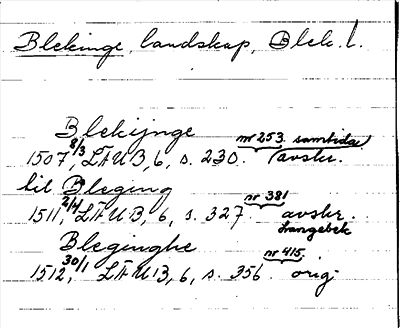 Blekinge, landskap, Blek. l.
Blekijnge
1507 8/3, LÄUB, 6, s. 230. nr 253. samtida avskr.
til Bleging
1511, 2/4 LÄUB, 6, s. 327. nr 381 avskr. Langebek
Bleginghe
1512, 30/1 LÄUB, 6, s. 356. nr 415. orig.